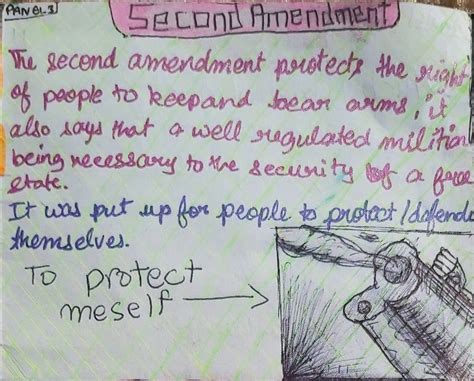 PANEL-3
Second Amendment
The second amendment protects the right
of people to keepand bear arms, it
also says that a well regulated militian
being necessary to the security of a free
state.
It was put up for people to protect/dafende
themselves.
To protect
meself